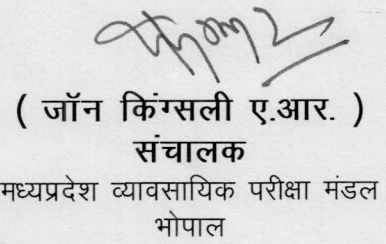 ( जॉन किंग्सली ए.आर. )
संचालक
मध्यप्रदेश व्यावसायिक परीक्षा मंडल
भोपाल